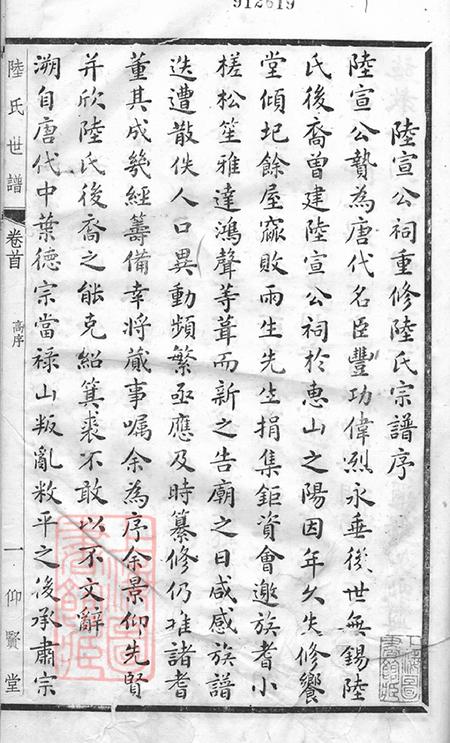 912619
陸宣公祠重修陸氏宗譜序
陸宣公贄為唐代名臣豐功偉烈永垂後世無錫陸
氏後裔曾建陸宣公祠於惠山之陽因年久失修饗
堂傾圮餘屋窳敗雨生先生捐集鉅資會邀族耆小
槎松笙雅達鴻聲等葺而新之告廟之日咸感族譜
迭遭散佚人口異動頻繁亟應及時纂修仍推諸耆
董其成幾經籌備幸將蕆事囑余為序余景仰先賢
并欣陸氏後裔之能克紹箕裘不敢以不文辭
溯自唐代中葉德宗當祿山叛亂敉平之後承肅宗
陸氏世譜
卷首
高序
一
仰賢堂